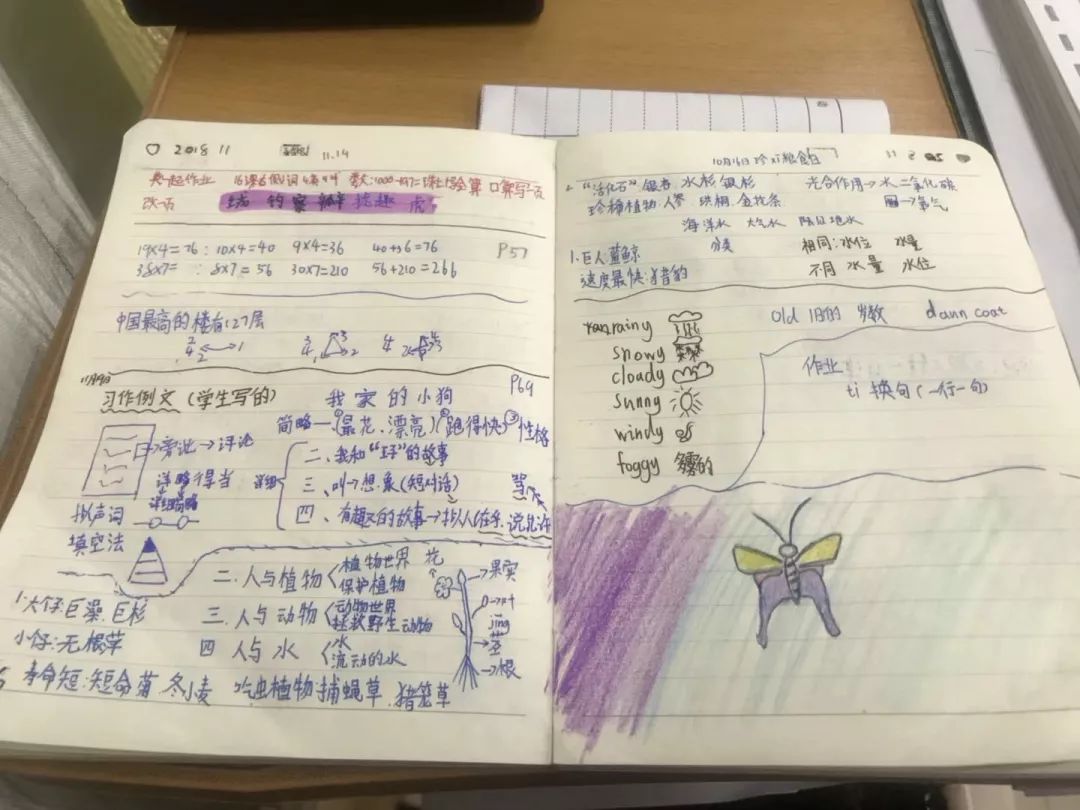 2018 11 11.14
一起作业 16课 词 口算写一页
改一页 家 趣 虎
19×4=76: 10×4=40 9×4=36 40+36=76 P57
38×7= : 8×7=56 30×7=210 56+210=266
中国最高的楼有127层
2 4 2 1 3 4 1 2 4
11月9日
习作例文(学生写的) 我家的小狗 P69
简略一、(①最花、漂亮)(②跑得快)③性格
旁批→评论 二、我和"王子"的故事
详略得当 详细 三、叫→想象(短对话)
详细 简略
拟声词 四、有趣的故事→拟人 说 允许
填空法
二.人与植物 植物世界 花 果实
保护植物
1.大仔:巨藻.巨杉 三、人与动物 动物世界 叶
拯救野生动物 jīng
小仔:无根萍 四 人与水 水 茎
流动的水 根
寿命短:短命菊 冬小麦 吃虫植物 捕蝇草.猪笼草
10月16日 粮食日 11
"活化石" 银杏.水杉 银杉 光合作用→水 二氧化碳
珍稀植物:人参.珙桐.金花茶 →氧气
海洋水 大气水 陆地水
分类 相同:水位 水量
1.巨人 蓝鲸 不同 水量 水位
速度最快:猎豹
rainy old 旧的 岁数 coat
snowy
cloudy 作业
sunny 换句(一行一句)
windy
foggy 雾的